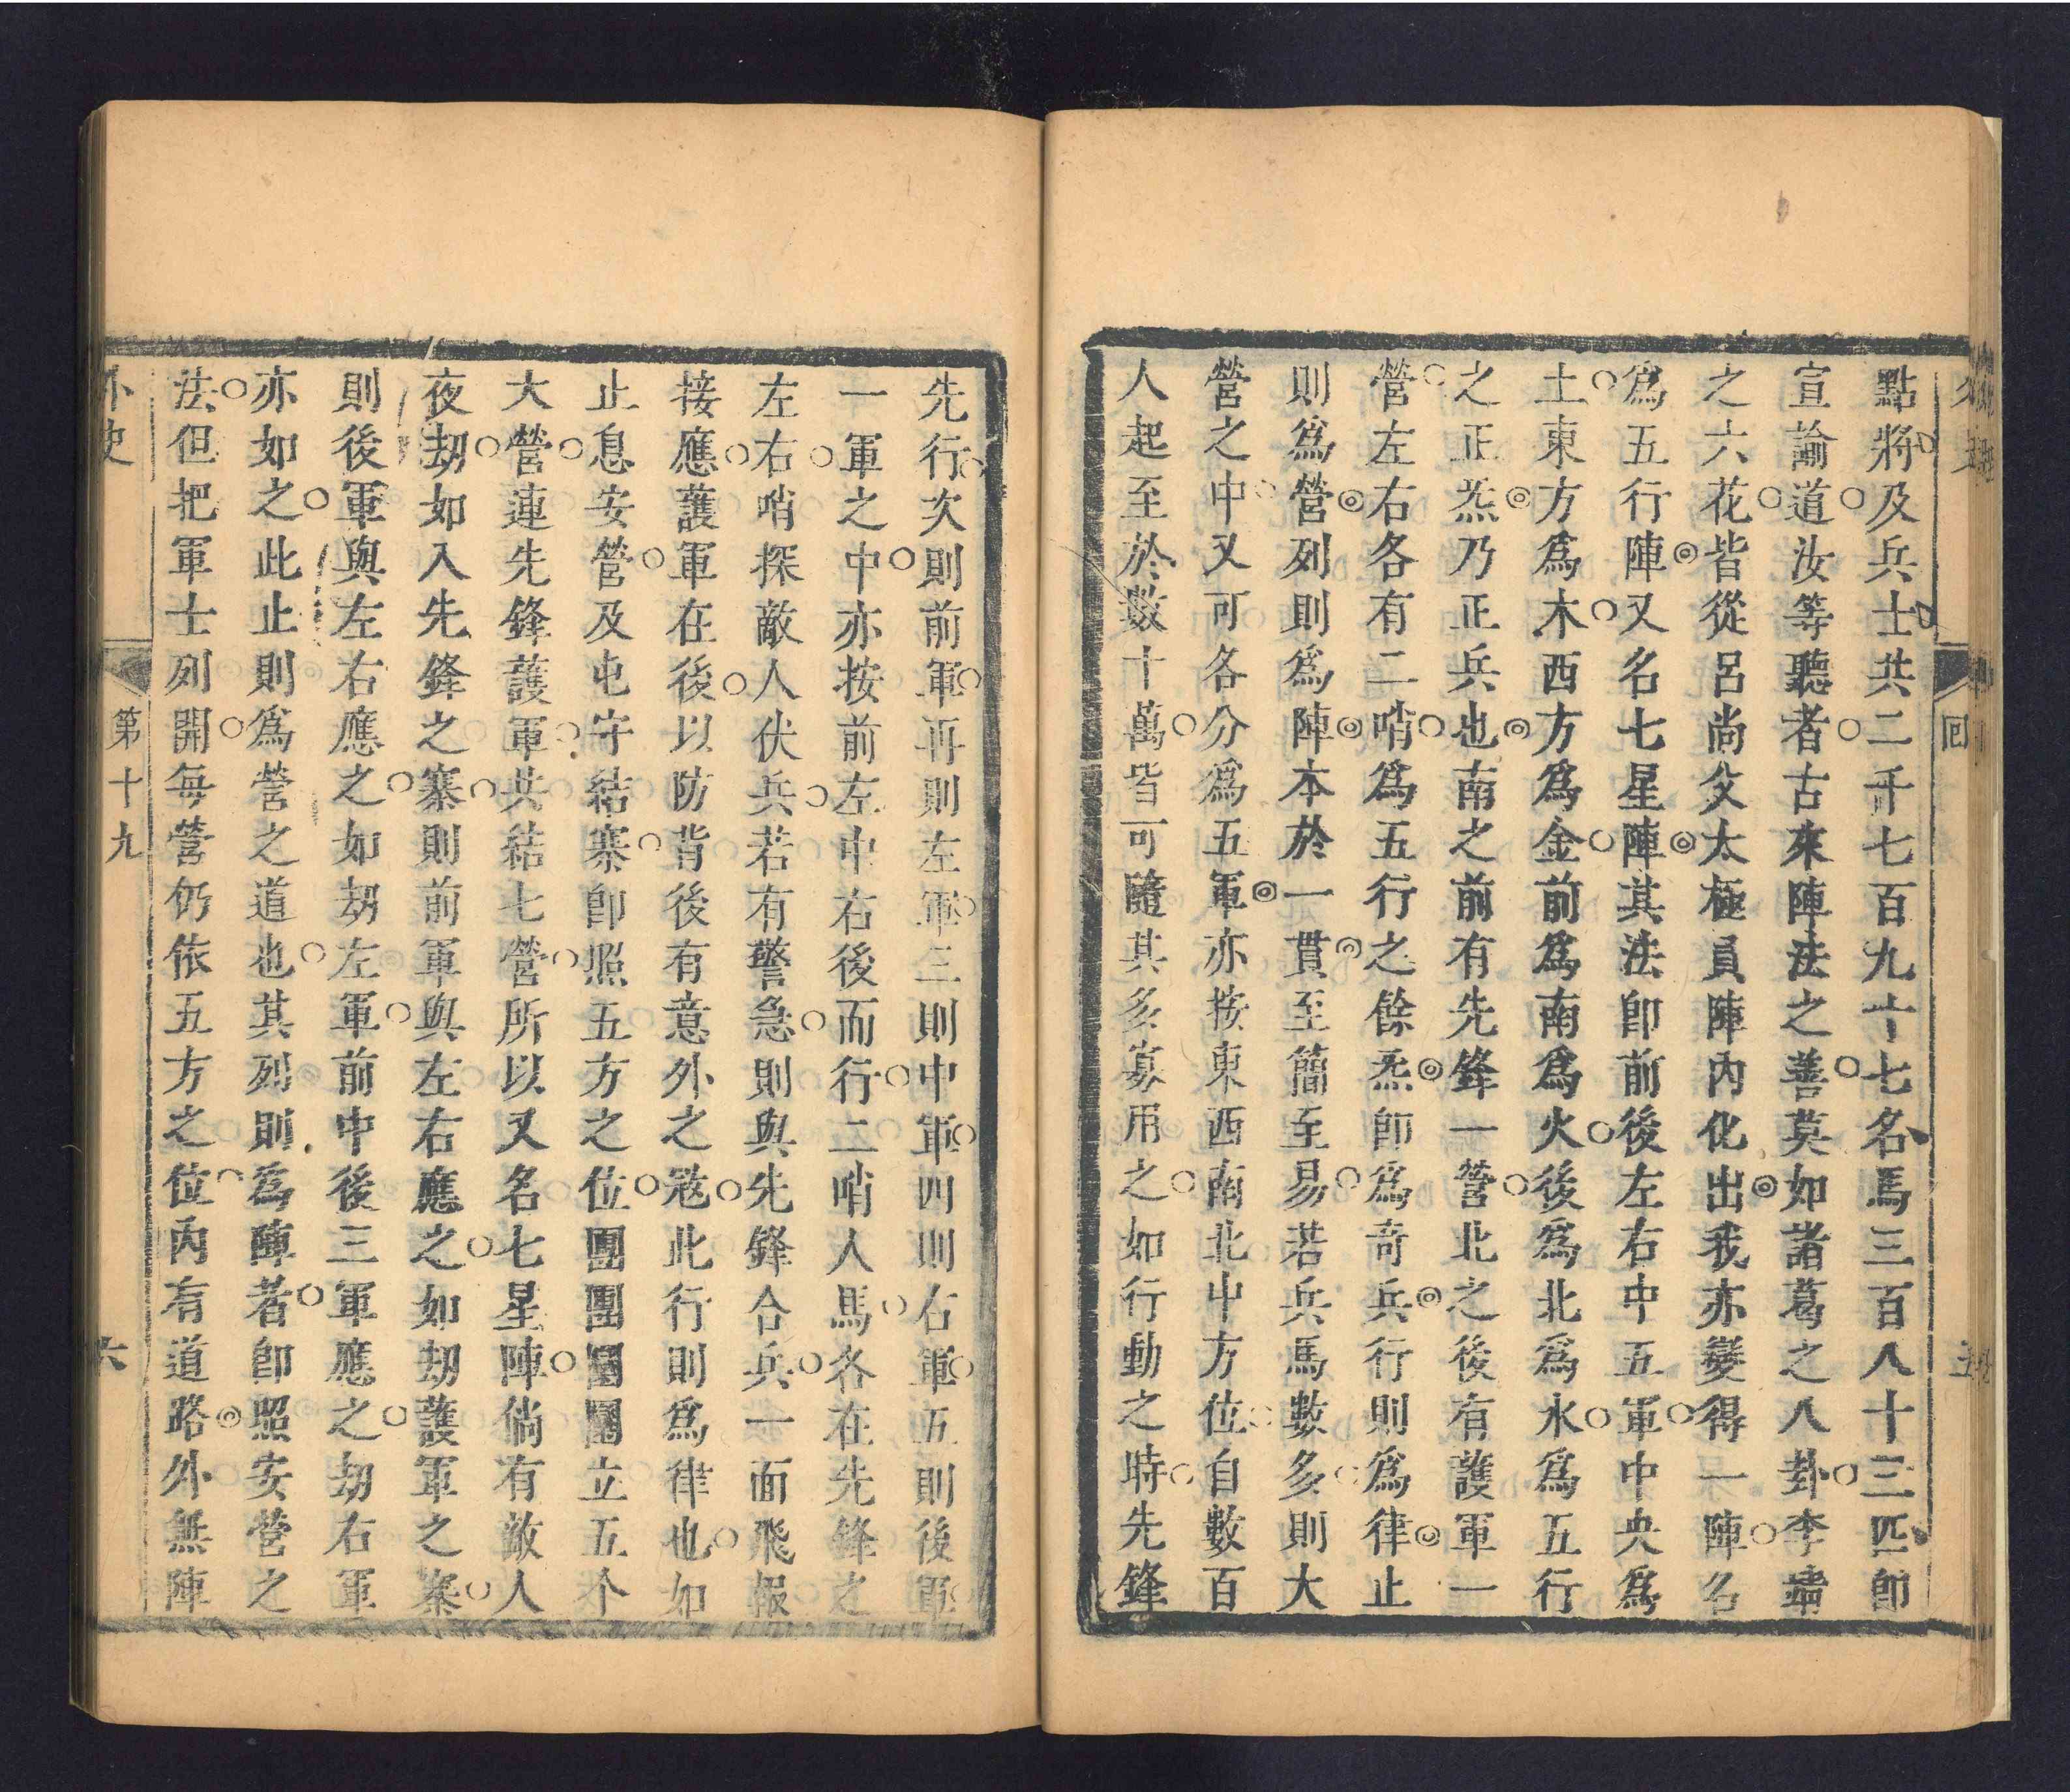 點將及兵士共二千七百九十七名馬三百八十三匹卽
宣諭道汝等聽者古來陣法之善莫如諸葛之八卦李靖
之六花皆從呂尚父太極員陣內化出我亦變得一陣名
爲五行陣又名七星陣其法卽前後左右中五軍中央爲
土東方爲木西方爲金前爲南爲火後爲北爲水爲五行
之正炁乃正兵也南之前有先鋒一營北之後有護軍一
營左右各有二哨爲五行之餘炁卽爲奇兵行則爲律止
則爲營列則爲陣本於一貫至簡至易若兵馬數多則大
營之中又可各分爲五軍亦按東西南北中方位自數百
人起至於數十萬皆可隨其多寡用之如行動之時先鋒
先行次則前軍再則左軍三則中軍四則右軍五則後軍
一軍之中亦按前左中右後而行二哨人馬各在先鋒之
左右哨探敵人伏兵若有警急則與先鋒合兵一面飛報
接應護軍在後以防背後有意外之寇此行則爲律也如
止息安營及屯守結寨卽照五方之位團團團團立五个
大營連先鋒護軍共結七營所以又名七星陣倘有敵人
夜刼如入先鋒之寨則前軍與左右應之如刼護軍之寨
則後軍與左右應之如刼左軍前中後三軍應之刼右軍
亦如之此止則爲營之道也其列則爲陣者卽照安營之
法但把軍士列開每營仍依五方之位內有道路外無陣
外史
第十九
六